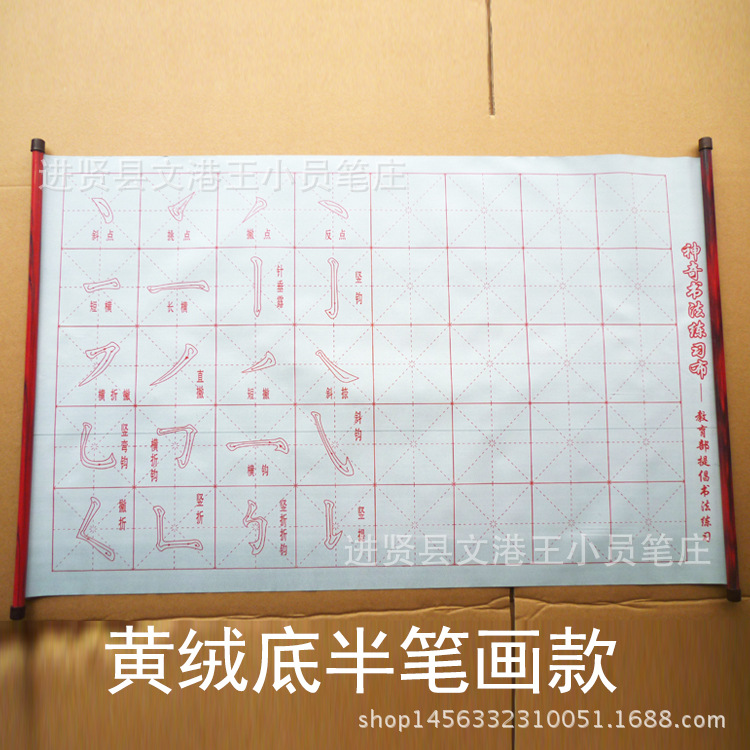 进贤县文港王小员笔庄
斜点 挑点 撇点 反点
短横 长横 针垂露 竖钩
横折撇 直撇 短撇 斜捺
竖弯钩 横折钩 横钩 斜钩
撇折 竖折 竖折折钩 竖
神奇书法练习布——教育部提倡书法练习
进贤县文港王小员笔庄
黄绒底半笔画款
shop1456332310051.1688.com